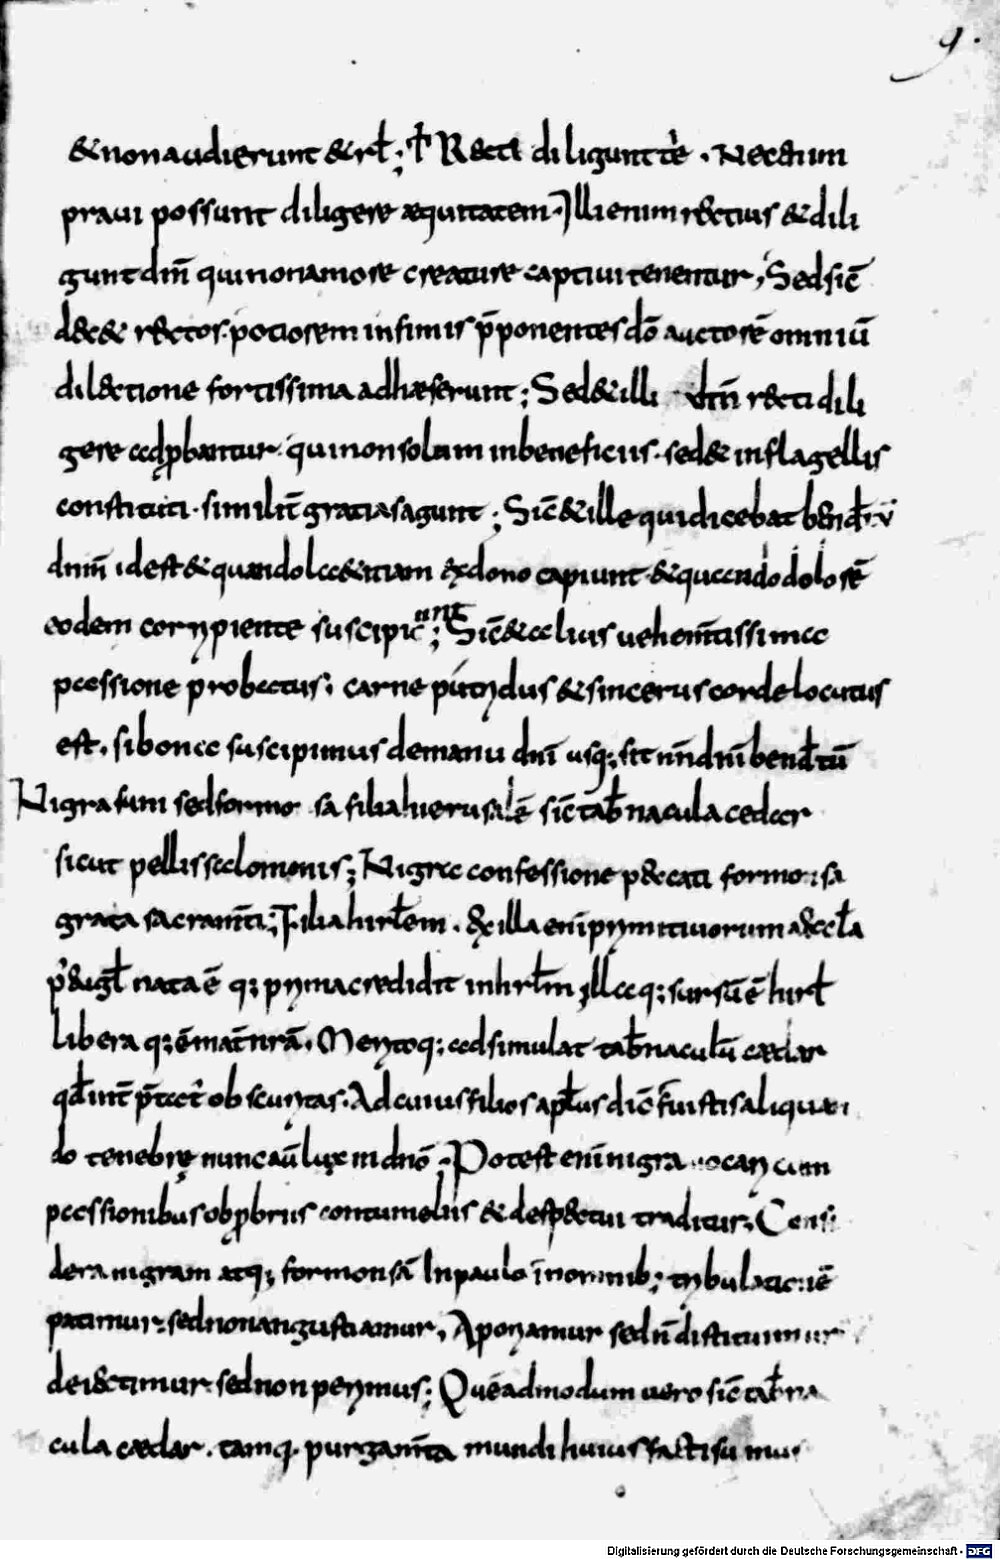 9.
& non audierunt & rł; ɫ Recti diligunt tè. Nec enim
praui possunt diligere æquitatem. Illi enim rectius & dili
gunt dm̄ qui non amore creature captiui tenentur; Sed sic̄
dec& rectos. potiorem infimis p̄ponentes dō auctorē omniū
dilectione fortissima adhæserunt; Sed & illi dm̄ recti dili
gere adꝓbantur. qui non solum in beneficiis. sed & in flagellis
constituti. similit̄ gratias agunt; Sic̄ & ille qui dicebat
dnm̄ id est & quando lætitiam ex dono capiunt. & quando dolorē
eodem corripiente suscipiunt; Sic̄ & alius uehem̄tissima
passione probatus. carne putridus & sincerus corde locutus
est. si bona suscipimus de manu dnī usq; sit dnī bened̄tū
Nigra sum sed formosa filia hierusalē sic̄ tab̄nacula cedar
sicut pellis salomonis; Nigra confessione peccati formonsa
gratia sacram̄ti; Filia hirl̄em. ex illa enī primitiuorum aeccl̄a
nata ē q; prima credidit in hrl̄m Illa q; sursū ē hirł
libera q; ē mat̄ nrā. Meritoq; adsimulat tab̄naculū cædar
qd̄ int̄ptat̄ obscuritas. Ad cuius filios apl̄us dic̄ fuistis aliquan
do tenebrę nunc aū lux in dnō; Potest enī nigra uocari cum
passionibus obꝓbriis contumeliis & despectui traditur; Consi
dera nigram atq; formonsā In paulo in omnib; tribulationē
patimur. sed non angustiamur, Aporiamur sed n̄ distituimur
deiectimur. sed non perimus; Quēadmodum uero sic̄ tab̄na
cula cædar. tamq. purgam̄ta mundi huius facti sumus
Digitalisierung gefördert durch die Deutsche Forschungsgemeinschaft - DFG